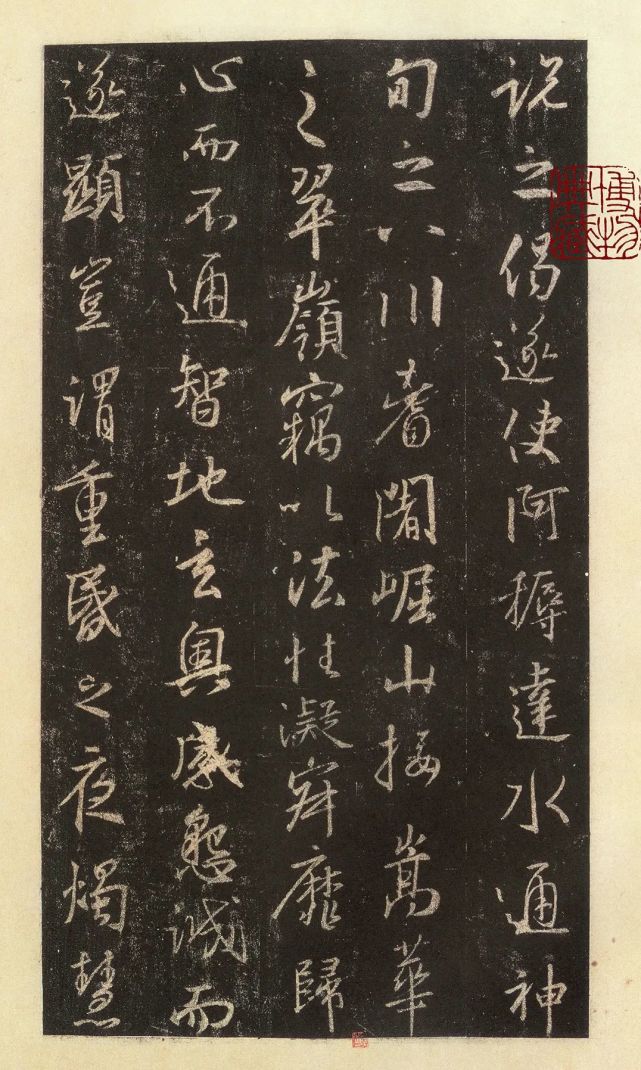 說之偈遂使阿耨達水通神
甸之八川耆闍崛山接嵩華
之翠嶺竊以法性凝寂靡歸
心而不通智地玄奧感懇誠而
遂顯豈謂重昏之夜燭慧
博物